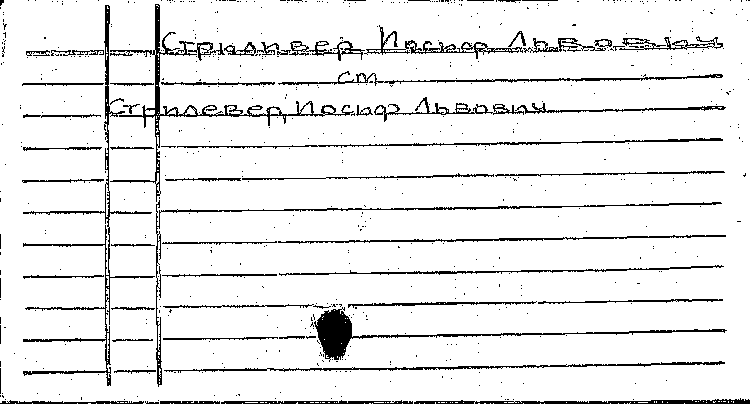 Стриливер, Иосиф Львович
см.
Стрилевер, Иосиф Львович